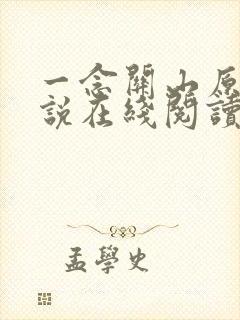 一念關山原
說在綫閱讀
孟學史